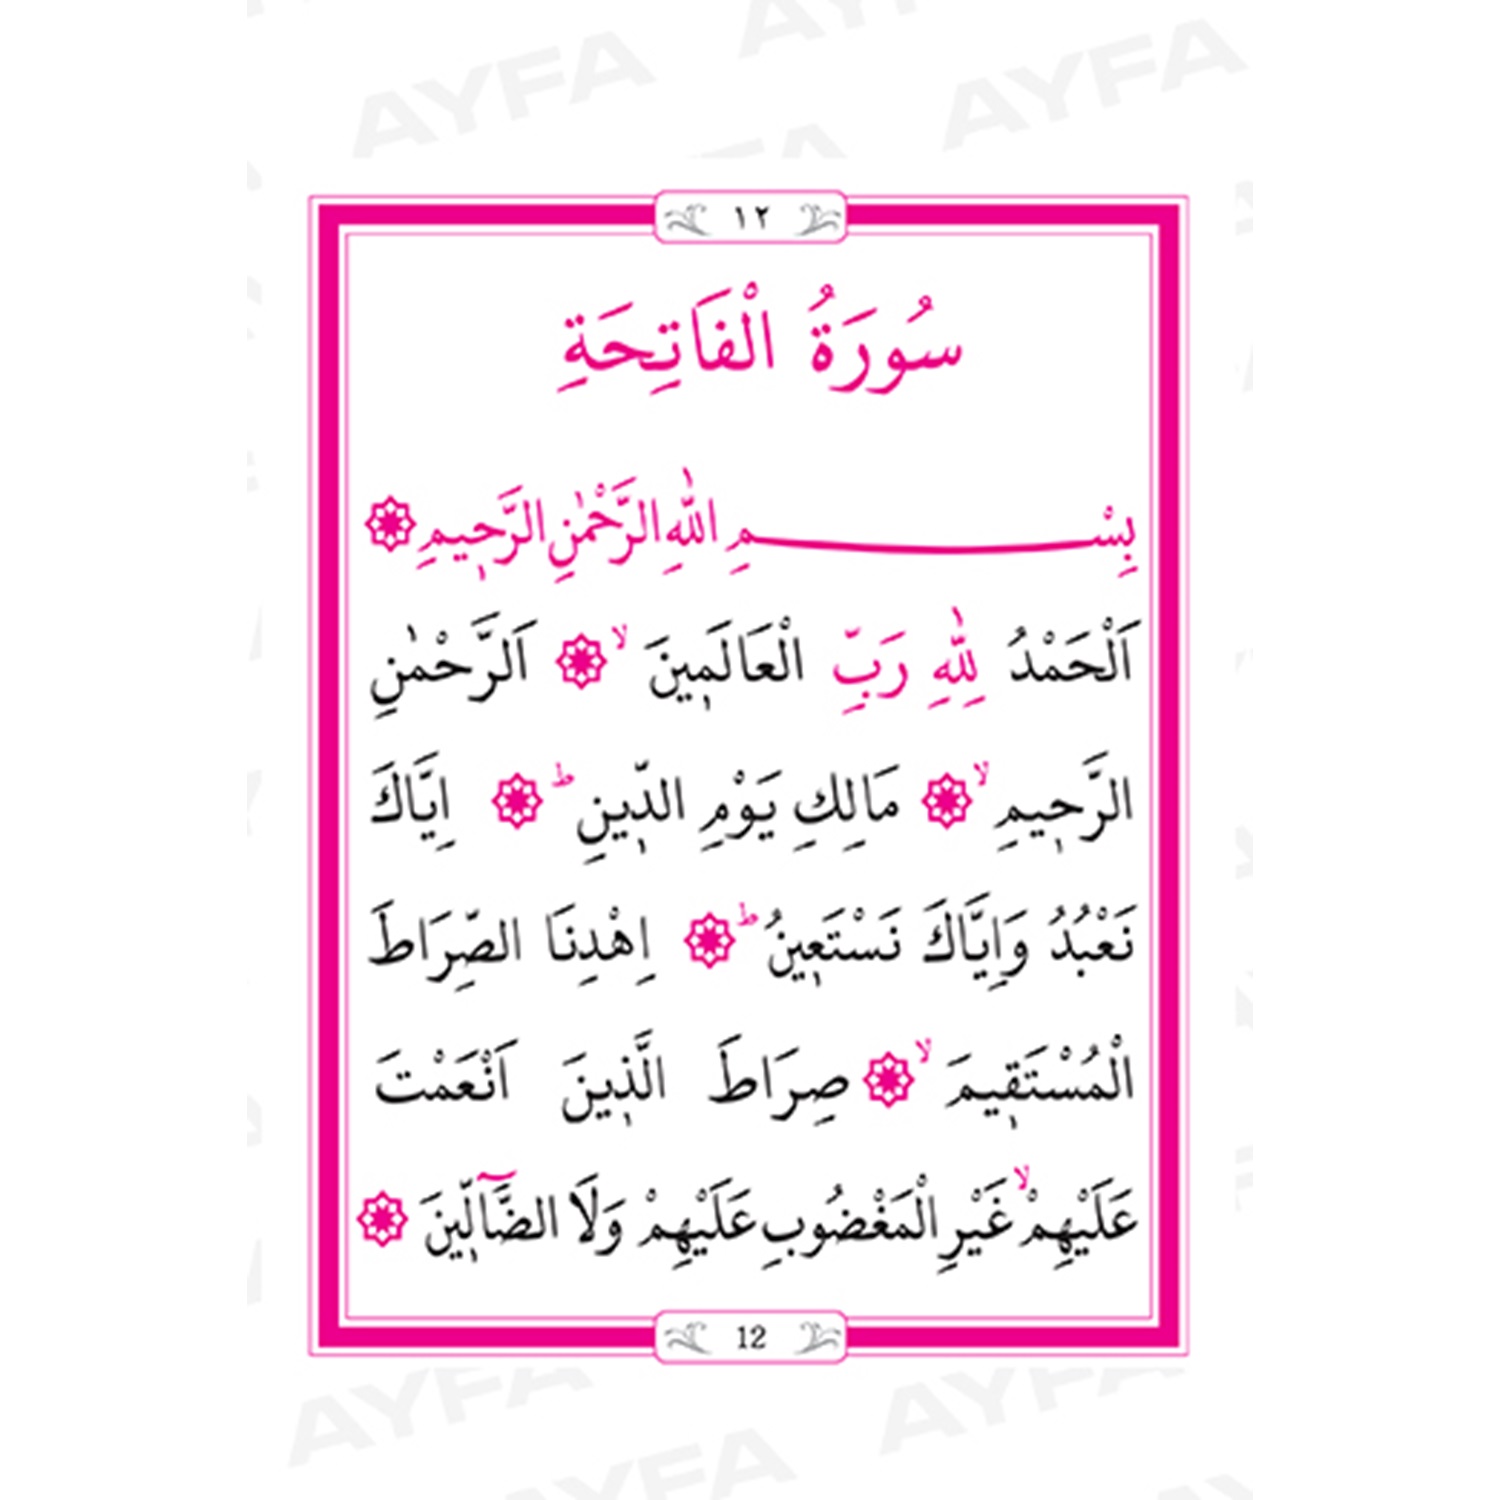 AYFA AYFA
١٢
سُورَةُ الْفَاتِحَةِ
بِسْمِ اللّٰهِ الرَّحْمٰنِ الرَّح۪يمِ ۞
اَلْحَمْدُ لِلّٰهِ رَبِّ الْعَالَم۪ينَۙ ۞ اَلرَّحْمٰنِ
الرَّح۪يمِۙ ۞ مَالِكِ يَوْمِ الدّ۪ينِۜ ۞ اِيَّاكَ
نَعْبُدُ وَاِيَّاكَ نَسْتَع۪ينُۜ ۞ اِهْدِنَا الصِّرَاطَ
الْمُسْتَق۪يمَۙ ۞ صِرَاطَ الَّذ۪ينَ اَنْعَمْتَ
عَلَيْهِمْۙ غَيْرِ الْمَغْضُوبِ عَلَيْهِمْ وَلَا الضَّٓالّ۪ينَ ۞
12
AYFA AYFA
AYFA